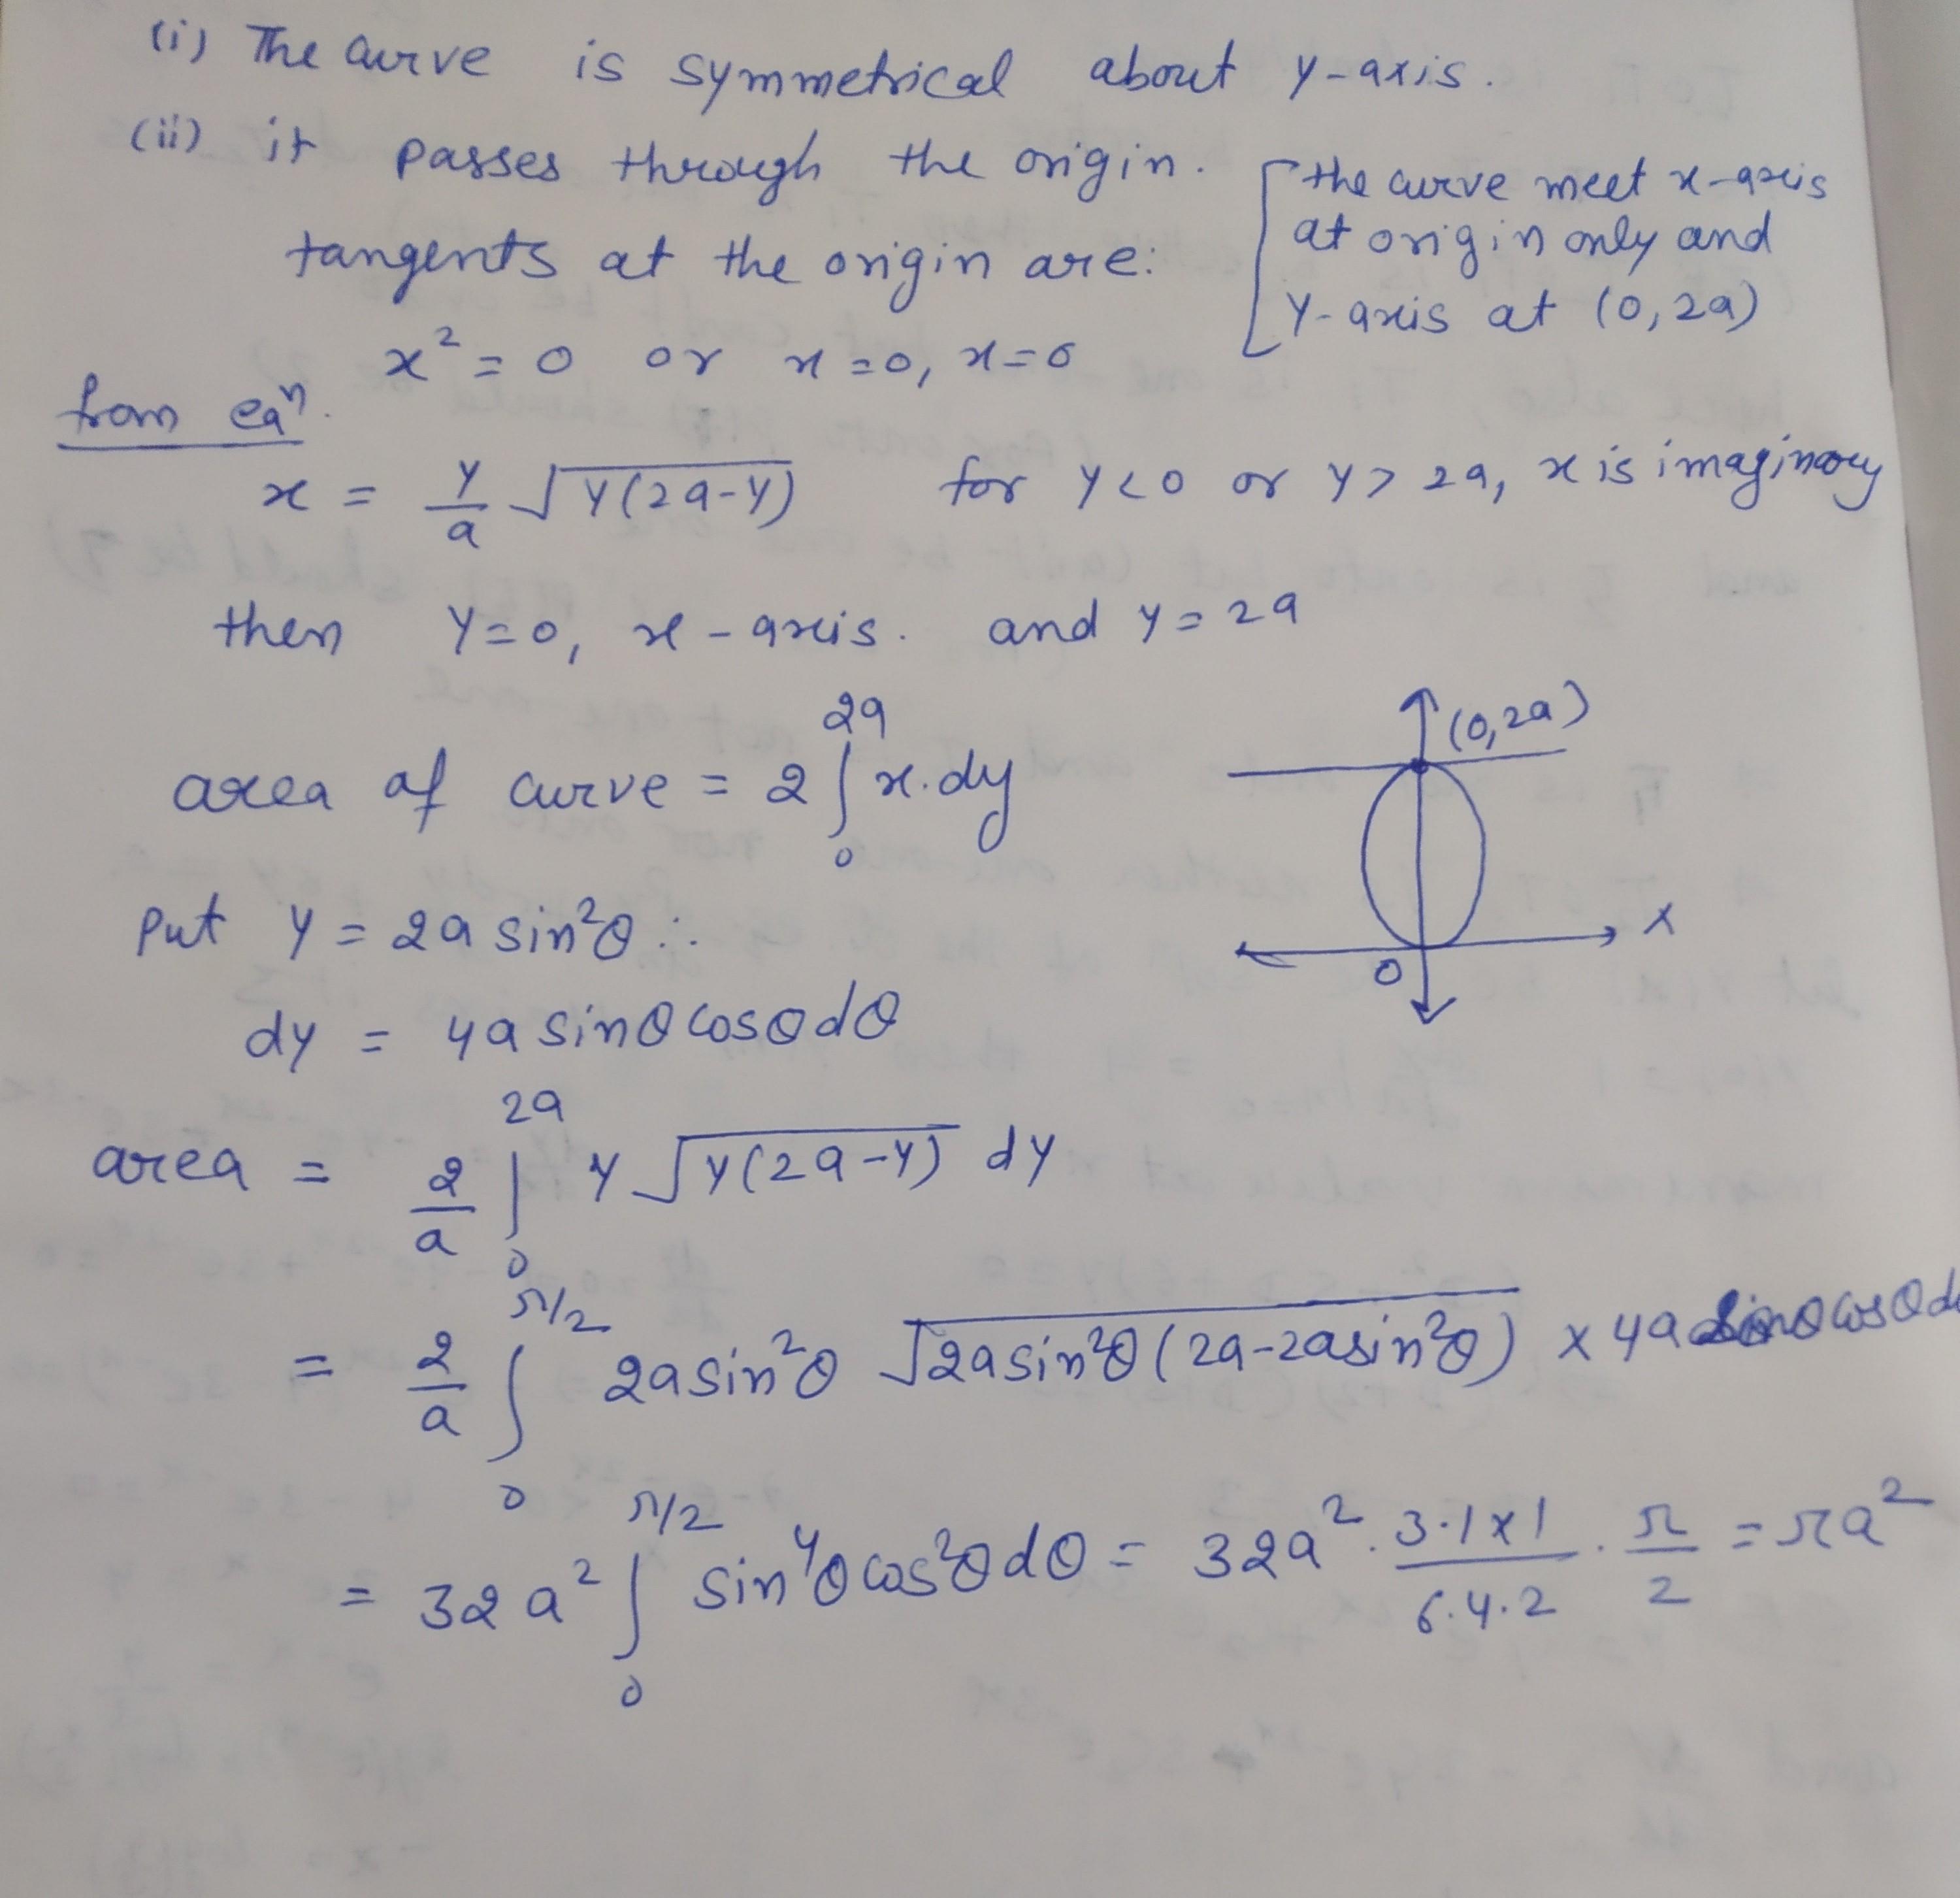 (i) The curve is symmetrical about y-axis.
(ii) it passes through the origin.
[the curve meet x-axis
at origin only and
y-axis at (0, 2a)
tangents at the origin are:
x² = 0 or x=0, x=0
from eqⁿ.
x = y/a √y(2a-y) for y<0 or y> 2a, x is imaginary
then y=0, x-axis. and y=2a
area of curve = 2 ∫₀²ᵃ x.dy
(0,2a)
X
O
Put y = 2a sin²θ ∴
dy = 4a sinθ cosθdθ
area = 2/a ∫₀²ᵃ y √y(2a-y) dy
= 2/a ∫₀^π/2 2a sin²θ √2a sin²θ(2a-2a sin²θ) × 4a sinθ cosθ d
= 32 a² ∫₀^π/2 sin⁴θ cos²θ dθ = 32a² . 3·1×1/6.4.2 . π/2 = πa²